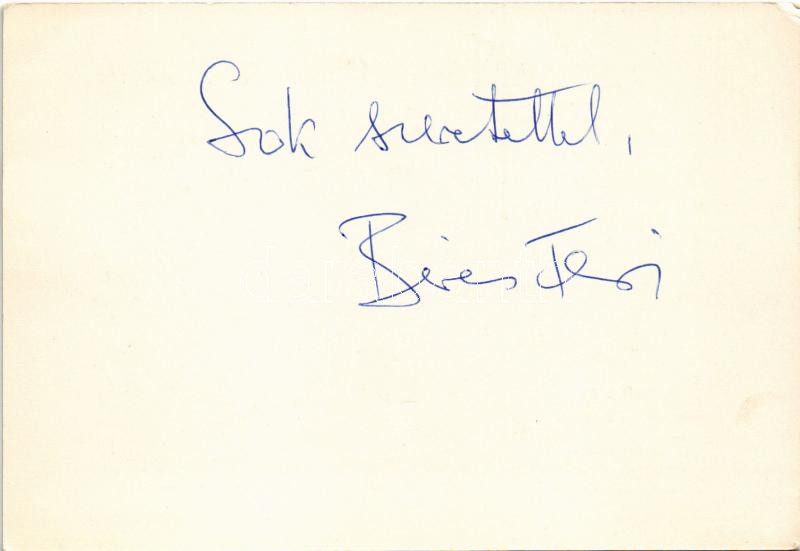 Sok szeretettel,
Béres Feri